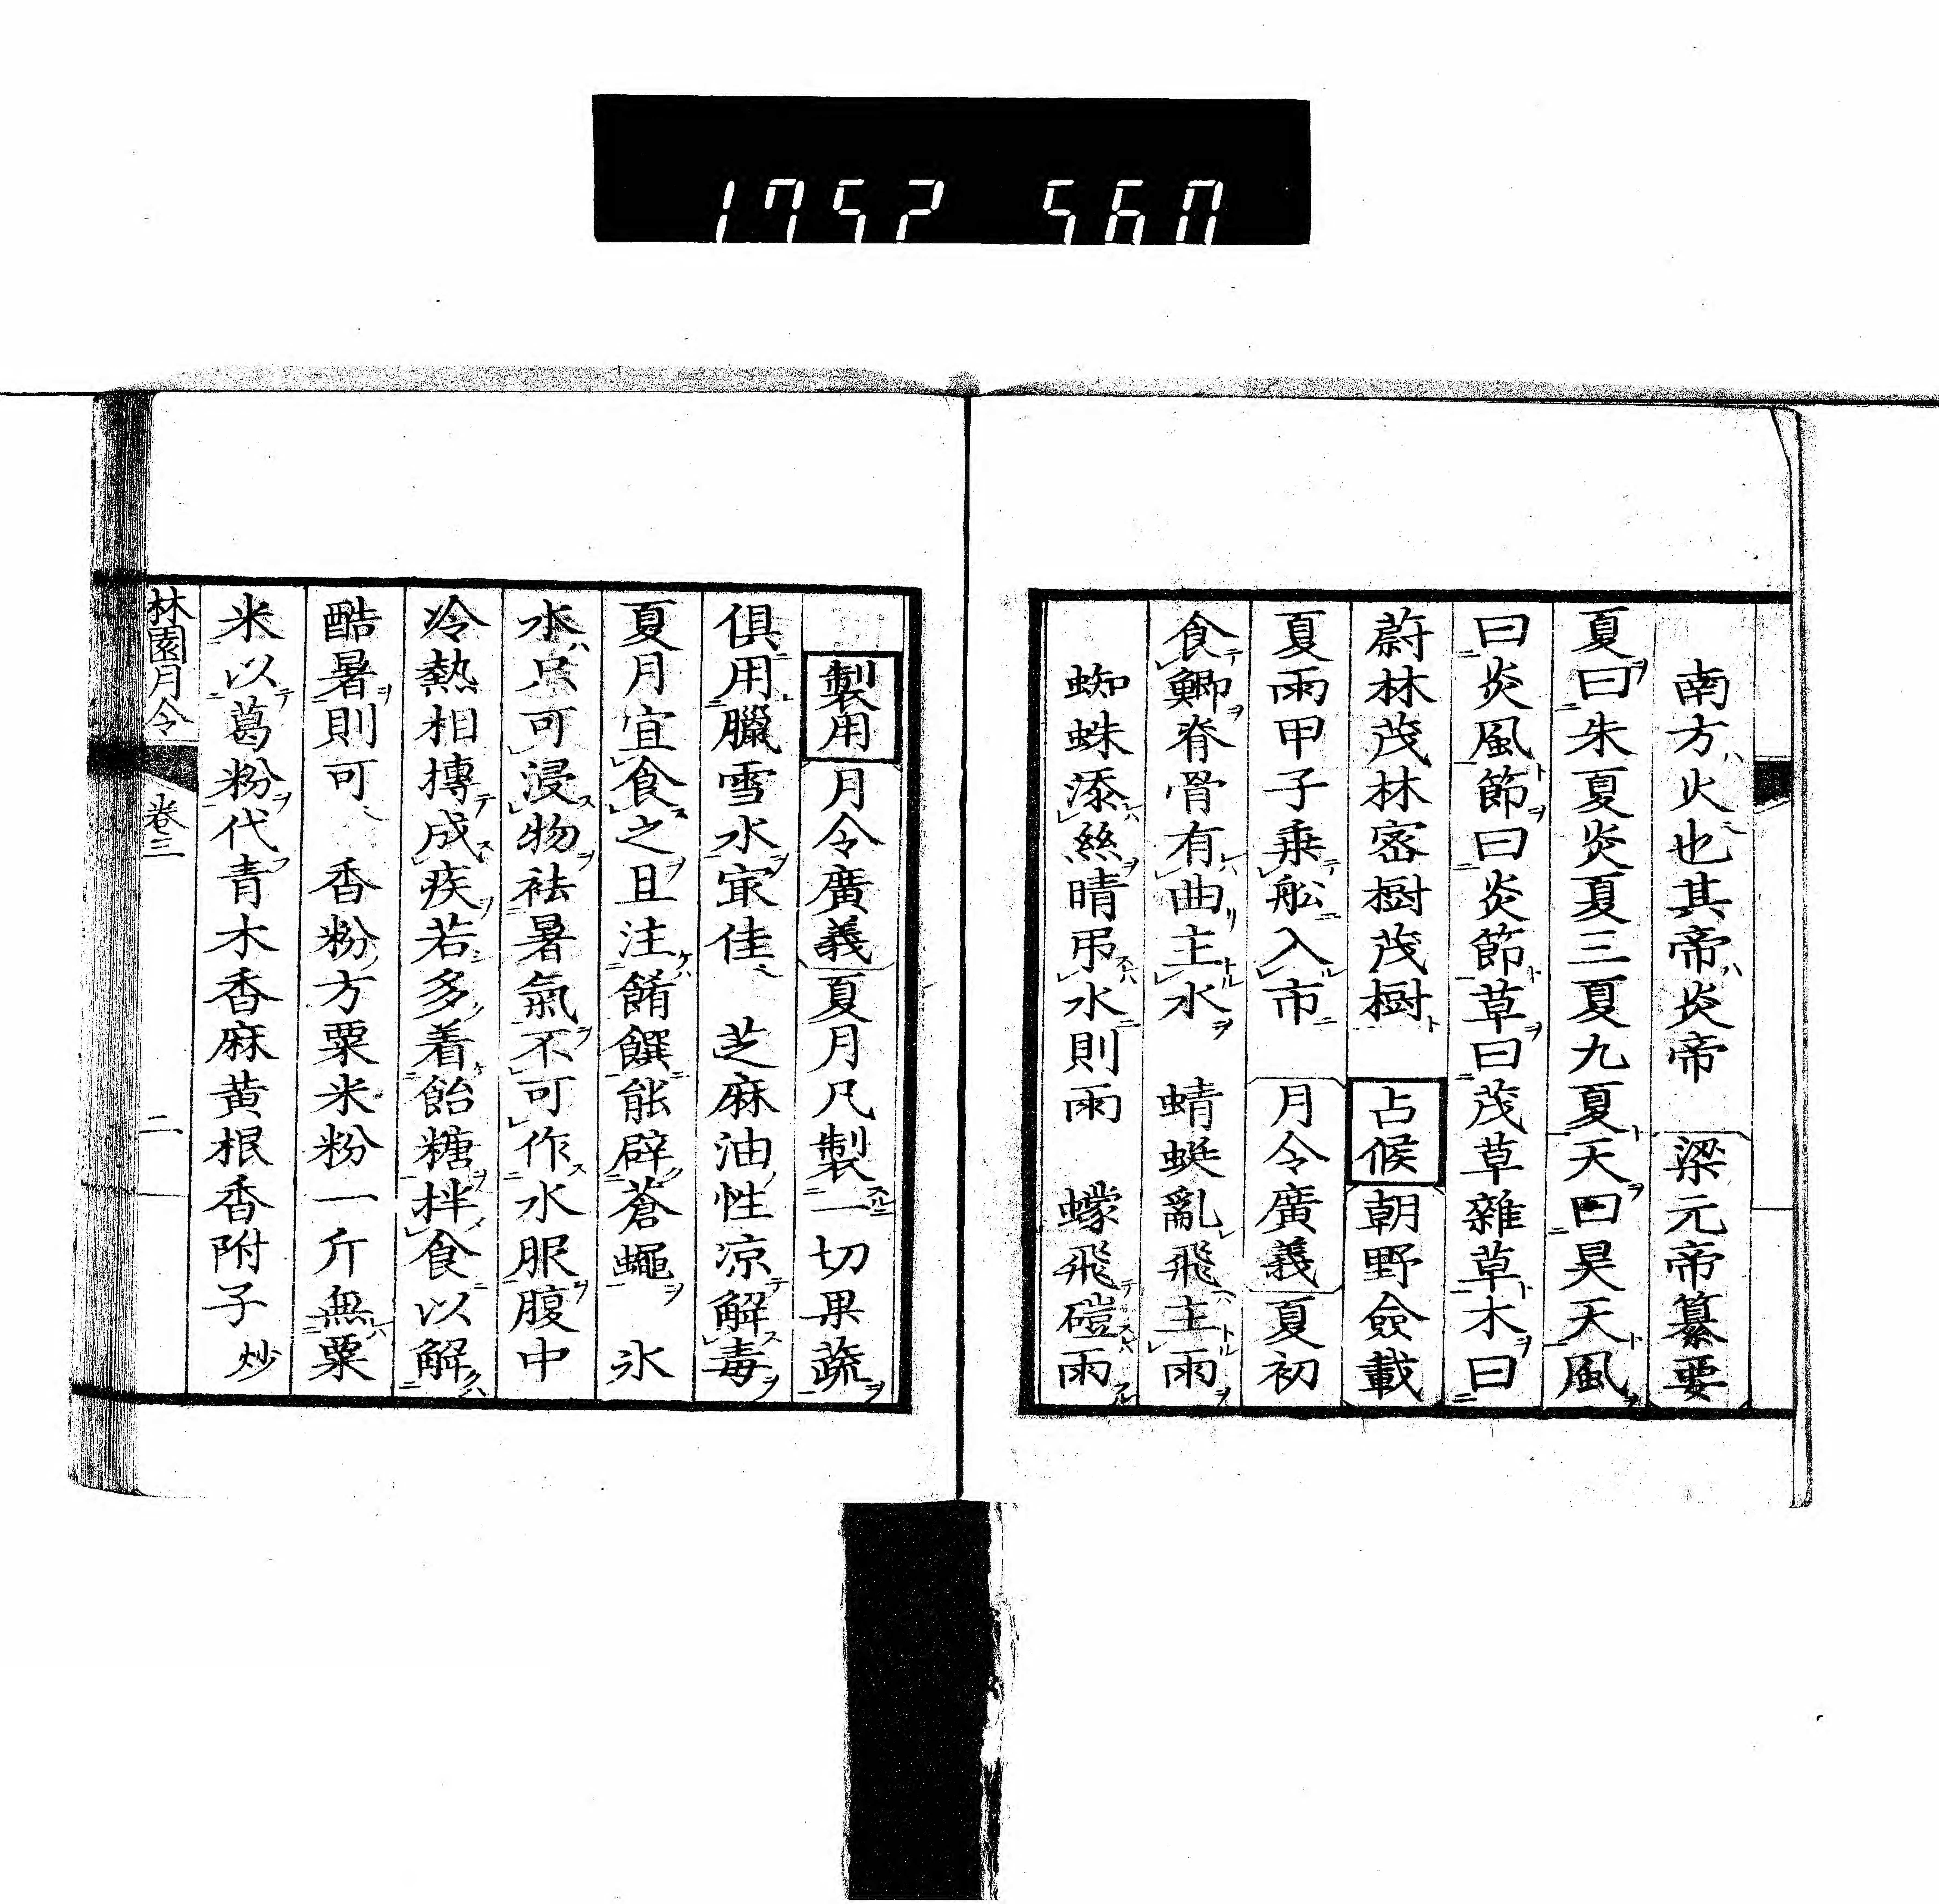 1752 560
南方火也其帝炎帝 梁元帝纂要
夏曰朱夏炎夏三夏九夏天曰昊天風
曰炎風節曰炎節草曰茂草雜草木曰
蔚林茂林密樹茂樹 占候 朝野僉載
夏雨甲子乗舩入市 月令廣義 夏初
食鯽脊骨有曲主水 蜻蜓亂飛主雨
蜘蛛添絲晴吊水則雨 蠓飛磑雨
製用 月令廣義 夏月凡製一切果蔬
俱用臘雪水㝡佳 芝麻油性凉解毒
夏月宜食之且注餚饌能辟蒼蠅 氷
水只可浸物祛暑氣不可作水服腹中
冷熱相摶成疾若多着飴糖拌食以解
酷暑則可 香粉方粟米粉一斤無粟
米以葛粉代青木香麻黄根香附子炒
林園月令 卷三 二